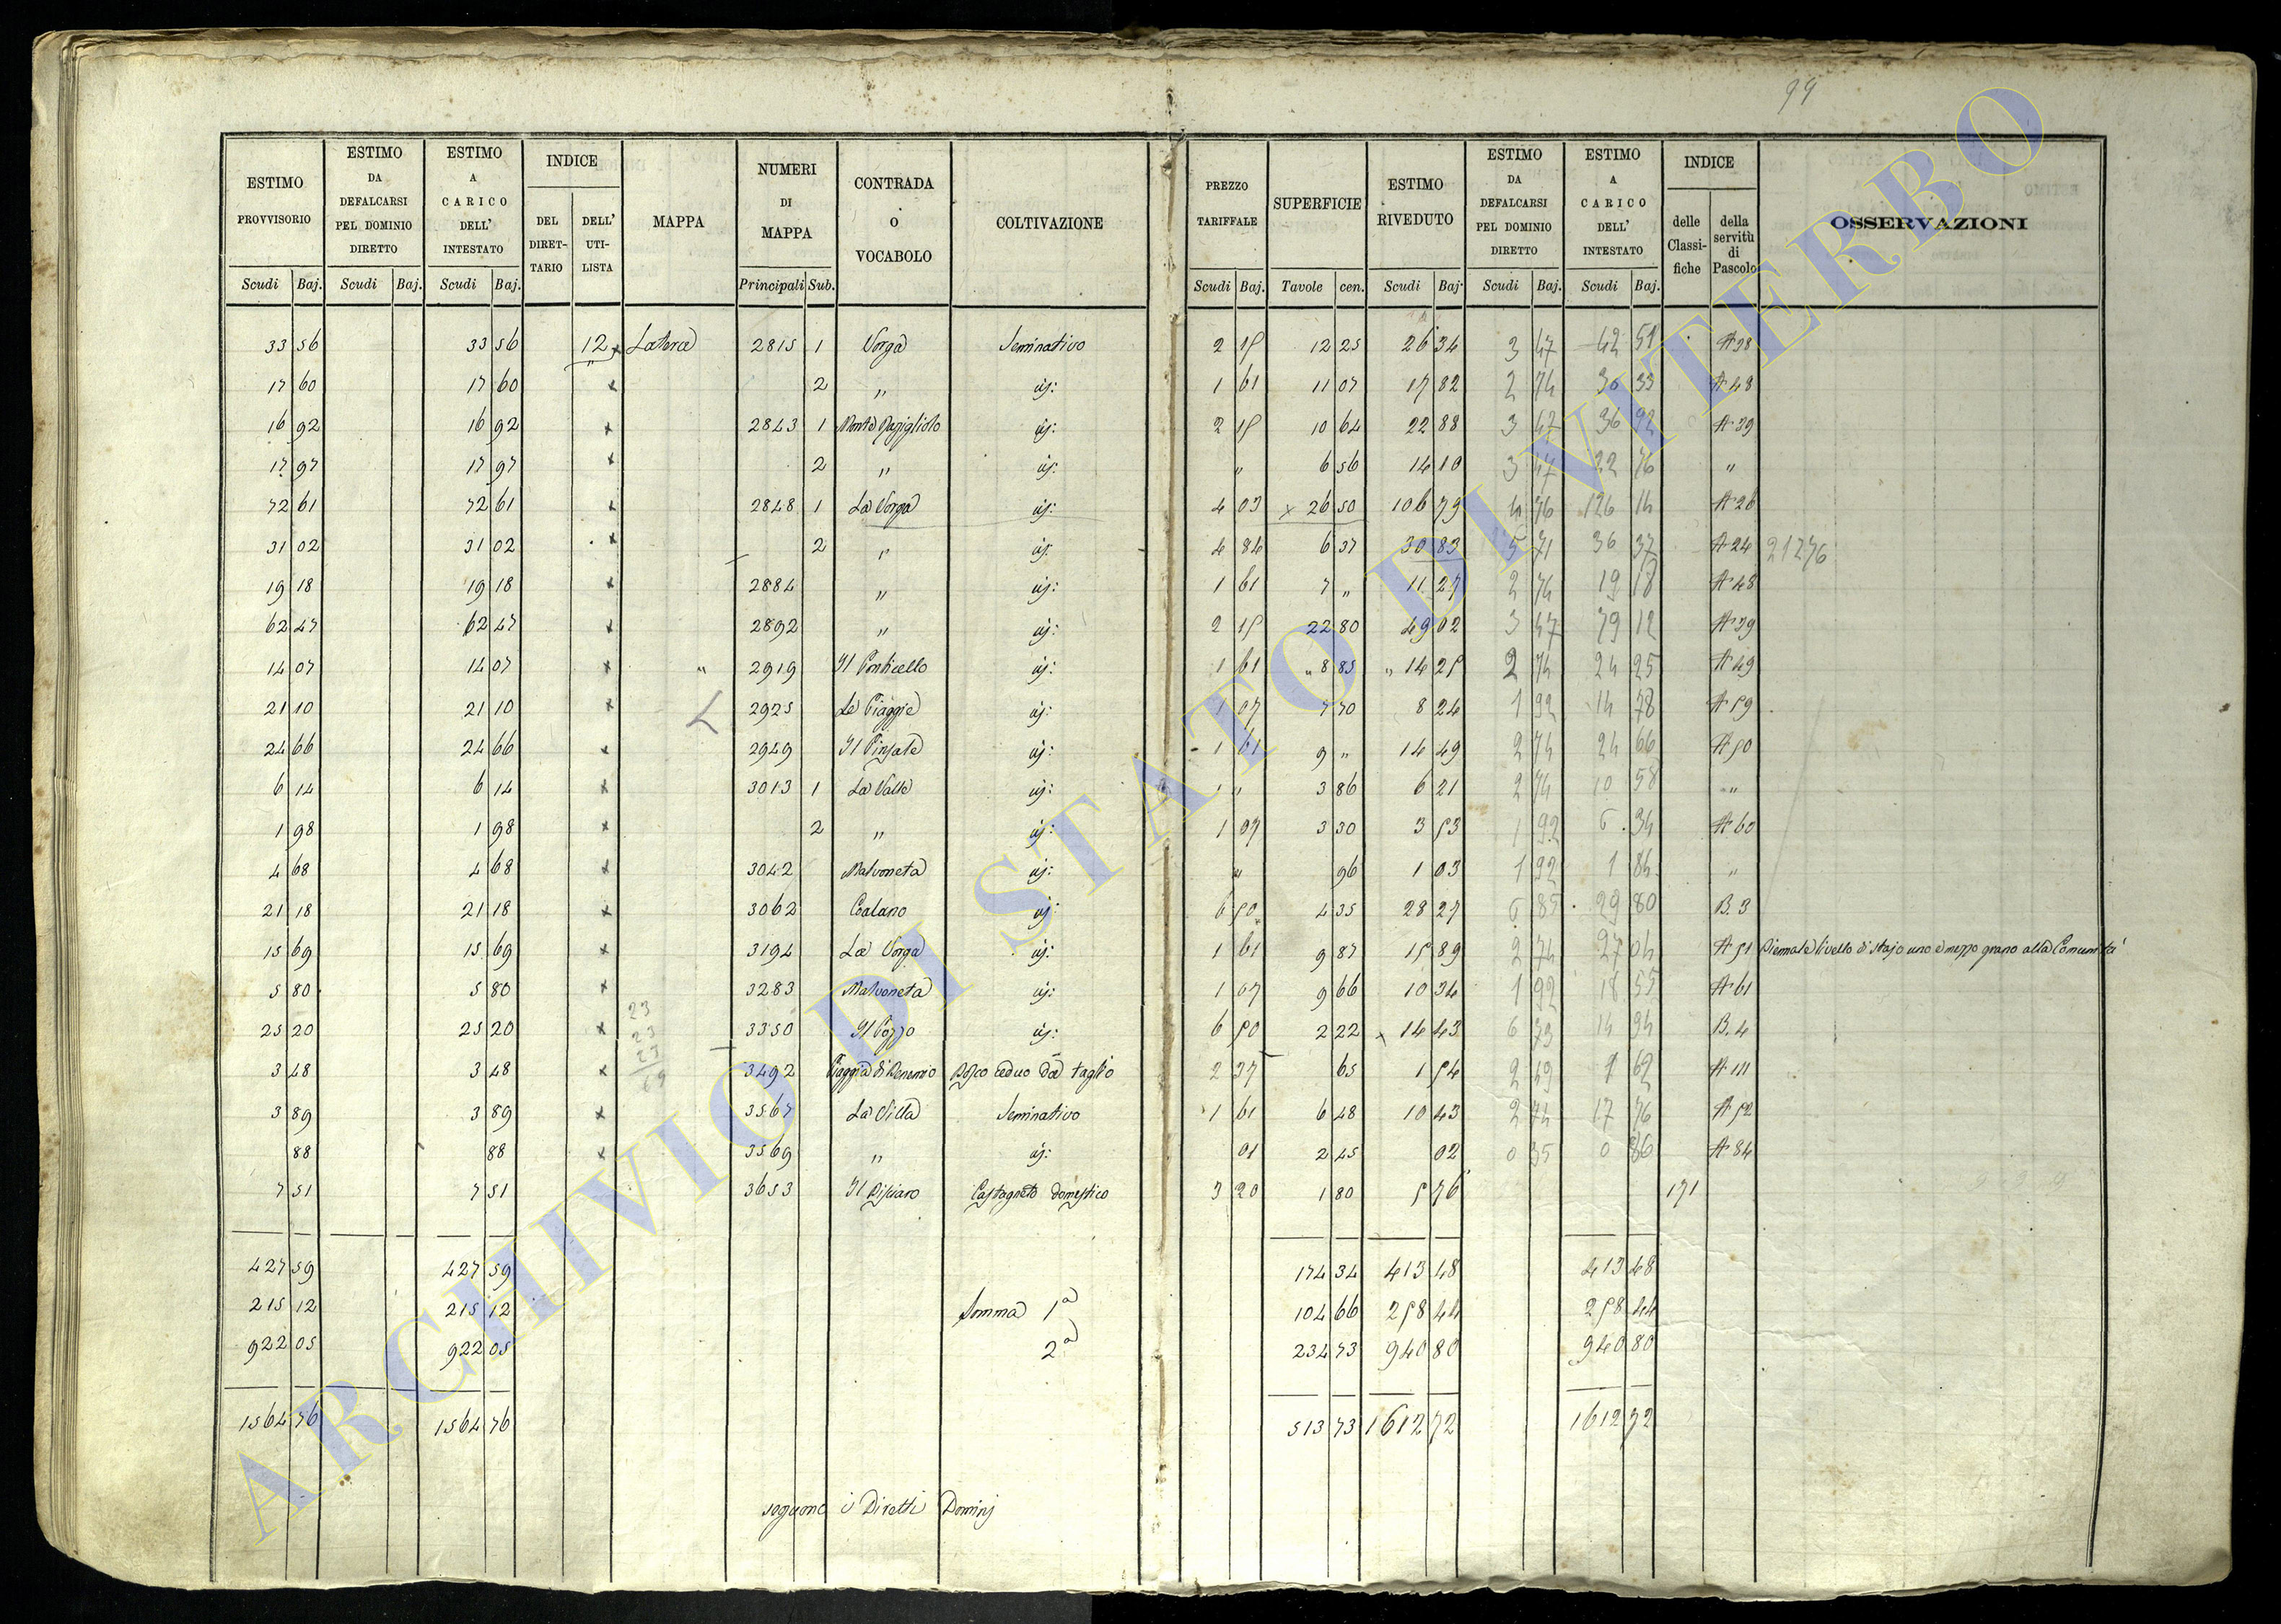 99
ESTIMO PROVVISORIO | ESTIMO DA DEFALCARSI PEL DOMINIO DIRETTO | ESTIMO A CARICO DELL' INTESTATO | INDICE | MAPPA | NUMERI DI MAPPA | CONTRADA O VOCABOLO | COLTIVAZIONE | PREZZO TARIFFALE | SUPERFICIE | ESTIMO RIVEDUTO | ESTIMO DA DEFALCARSI PEL DOMINIO DIRETTO | ESTIMO A CARICO DELL' INTESTATO | INDICE | OSSERVAZIONI
DEL DIRETTARIO | DELL' UTILISTA | delle Classifiche | della servitù di Pascolo
Scudi Baj. | Scudi Baj. | Scudi Baj. | Principali Sub. | Scudi Baj. | Tavole cen. | Scudi Baj. | Scudi Baj. | Scudi Baj.
33 56 33 56 12 x Latera 2815 1 Vorga Seminativo 2 15 12 25 26 34 3 47 42 51 A 38
17 60 17 60 x 2 " iđ: 1 61 11 07 17 82 2 74 30 33 A 48
16 92 16 92 x 2843 1 iđ: 2 15 10 64 22 88 3 47 36 92 A 39
17 97 17 97 x 2 " iđ: " 6 56 14 10 3 47 22 76 "
72 61 72 61 x 2848 1 La Vorga iđ: 4 03 x 26 50 106 79 4 76 126 14 A 26
31 02 31 02 x 2 " iđ: 4 84 6 37 30 83 5 71 36 37 A 24 21276
19 18 19 18 x 2884 " iđ: 1 61 7 " 11 27 2 74 19 18 A 48
62 47 62 47 x 2892 " iđ: 2 15 22 80 49 02 3 47 79 12 A 39
14 07 14 07 x " 2919 Il Ponticello iđ: 1 61 " 8 85 " 14 25 2 74 24 25 A 49
21 10 21 10 x 2925 Le Piaggie iđ: 1 07 7 70 8 24 1 92 14 78 A 59
24 66 24 66 x 2949 iđ: 1 61 9 " 14 49 2 74 24 66 A 50
6 14 6 14 x 3013 1 La Valle iđ: 1 " 3 86 6 21 2 74 10 58 "
1 98 1 98 x 2 " iđ: 1 07 3 30 3 53 1 92 6 34 A 60
4 68 4 68 x 3042 Malvoneta iđ: " 96 1 03 1 92 1 84 "
21 18 21 18 x 3062 Catano iđ: 6 50 4 35 28 27 6 85 29 80 B. 3
15 69 15 69 x 3194 La Vorga iđ: 1 61 9 87 15 89 2 74 27 04 A 51 Biennale livello di stajo uno e mezzo grano alla Comunità
5 80 5 80 x 3283 Malvoneta iđ: 1 07 9 66 10 34 1 92 18 55 A 61
23
25 20 25 20 x 23 3350 Il Pozzo iđ: 6 50 2 22 x 14 43 6 73 14 94 B. 4
23
3 48 3 48 x 69 3492 Piaggia di Bosco ceduo da taglio 2 37 65 1 54 2 49 1 62 A 111
3 89 3 89 x 3567 La Villa Seminativo 1 61 6 48 10 43 2 74 17 76 A 52
88 88 x 3569 " iđ: 01 2 45 02 0 35 0 86 A 84
7 51 7 51 3653 Il Castagneto domestico 3 20 1 80 5 76 171
427 59 427 59 174 34 413 48 413 48
215 12 215 12 Somma 1ª 104 66 258 44 258 44
922 05 922 05 2ª 234 73 940 80 940 80
1564 76 1564 76 513 73 1612 72 1612 72
seguono i Diretti Dominj
ARCHIVIO DI STATO DI VITERBO